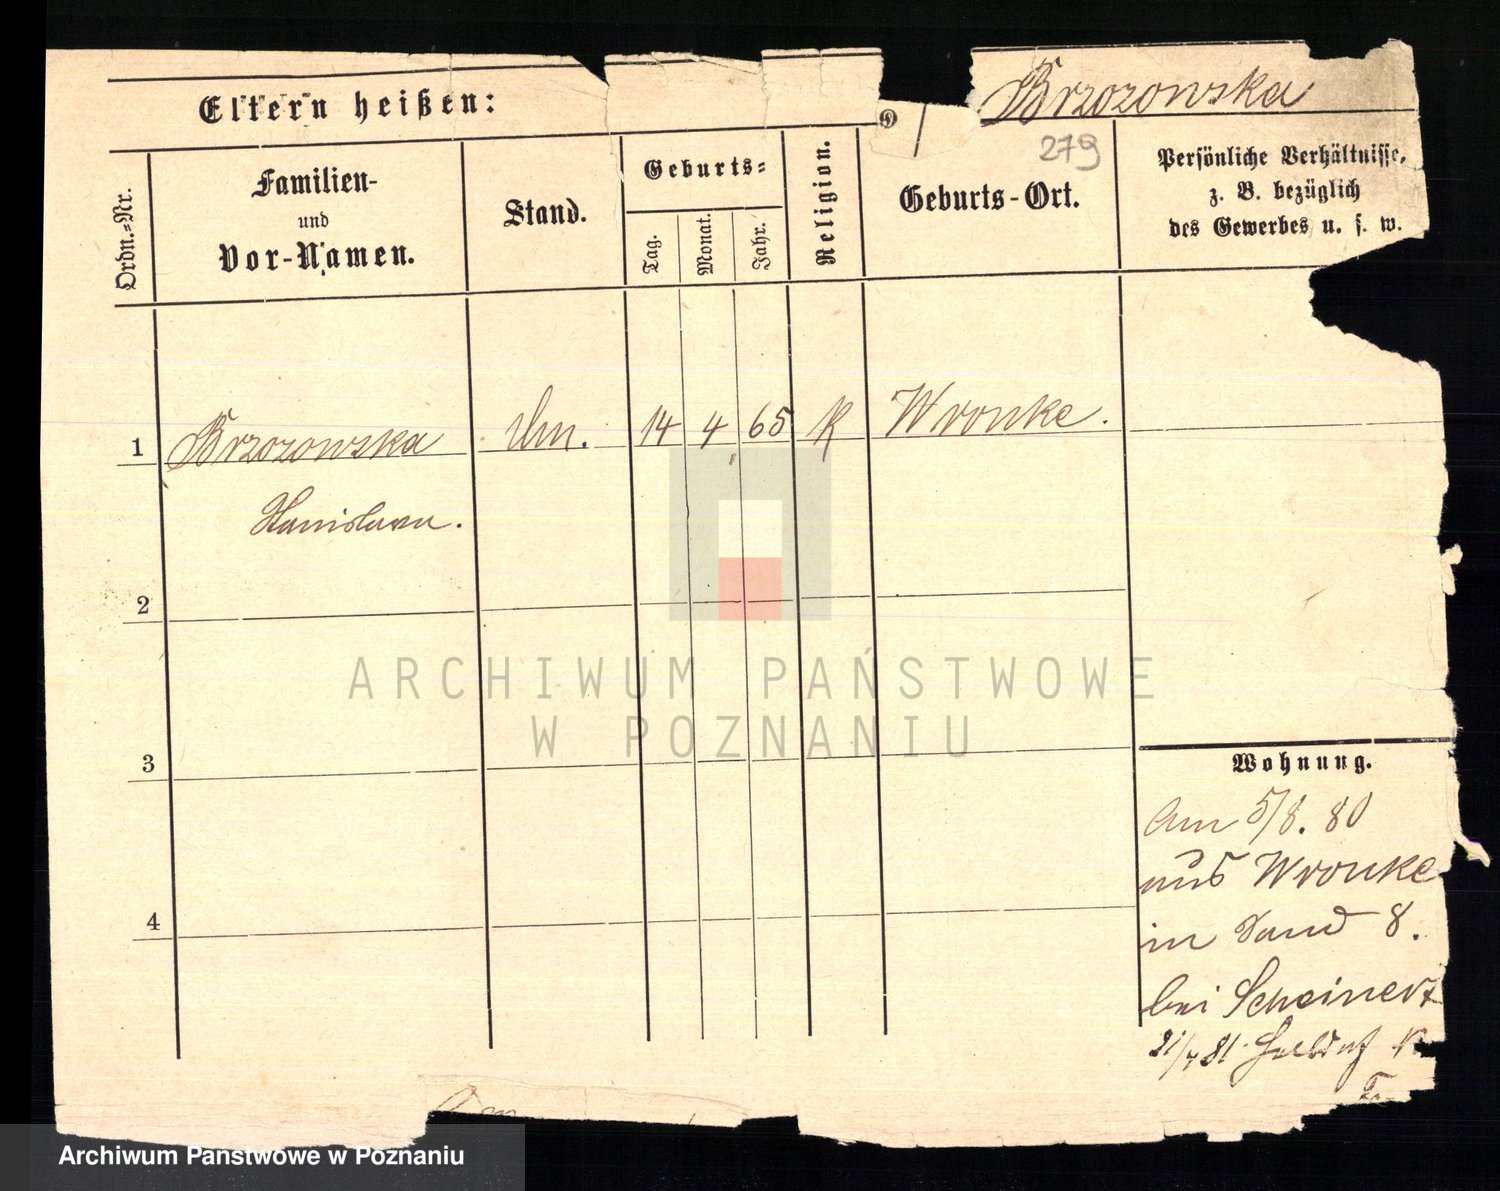 Brzozowska
Eltern heißen:
279
Ordn.-Nr.
Familien-
und
Vor-Namen.
Stand.
Geburts-
Tag.
Monat.
Jahr.
Religion.
Geburts-Ort.
Persönliche Verhältnisse,
z. B. bezüglich
des Gewerbes u. s. w.
1 Brzozowska 14 4 65 K Wronke.
Stanislawa.
2
3
4
Wohnung.
Am 5/8. 80
aus Wronke
in Sand 8.
bei Scheinert
21/4 81.
ARCHIWUM PAŃSTWOWE
W POZNANIU
Archiwum Państwowe w Poznaniu